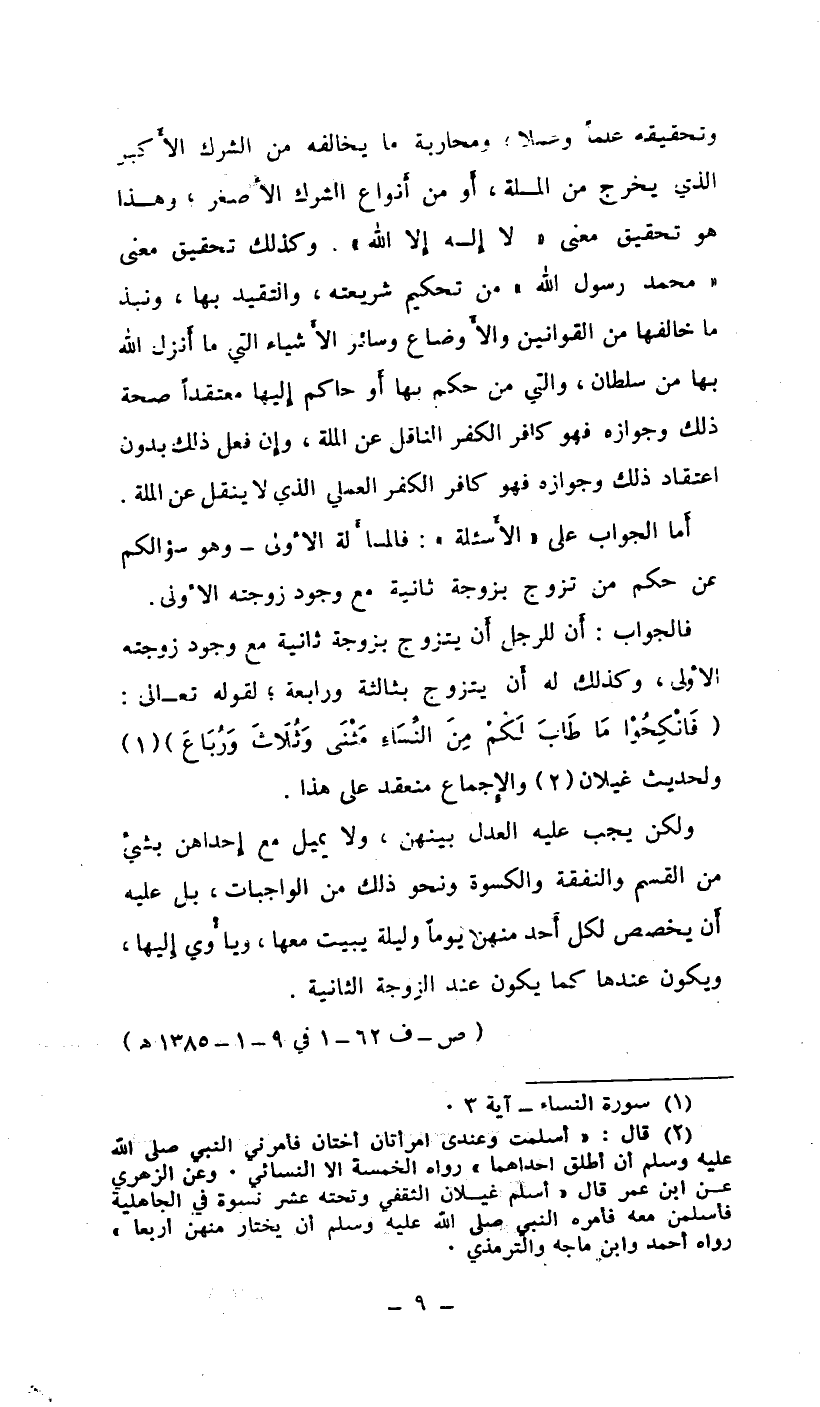 وتحقيقه علماً وعملا ؛ ومحاربة ما يخالفه من الشرك الأكبر
الذي يخرج من المـلة ، أو من أنواع الشرك الأصغر ؛ وهـذا
هو تحقيق معنى « لا إلـه إلا الله » . وكذلك تحقيق معنى
« محمد رسول الله » من تحكيم شريعته ، والتقيد بها ، ونبذ
ما خالفها من القوانين والأوضاع وسائر الأشياء التي ما أنزل الله
بها من سلطان ، والتي من حكم بها أو حاكم إليها معتقداً صحة
ذلك وجوازه فهو كافر الكفر الناقل عن الملة ، وإن فعل ذلك بدون
اعتقاد ذلك وجوازه فهو كافر الكفر العملي الذي لا ينقل عن الملة .
أما الجواب على « الأسئلة » : فالمسألة الأولى – وهو سؤالكم
عن حكم من تزوج بزوجة ثانية مع وجود زوجته الأولى .
فالجواب : أن للرجل أن يتزوج بزوجة ثانية مع وجود زوجته
الأولى ، وكذلك له أن يتزوج بثالثة ورابعة ؛ لقوله تعـالى :
( فَانْكِحُوْا مَا طَابَ لَكُمْ مِنَ النِّسَاءِ مَثْنَى وَثُلَاثَ وَرُبَاعَ )(١)
ولحديث غيلان (٢) والإجماع منعقد على هذا .
ولكن يجب عليه العدل بينهن ، ولا يميل مع إحداهن بشيءٍ
من القسم والنفقة والكسوة ونحو ذلك من الواجبات ، بل عليه
أن يخصص لكل أحد منهن يوماً وليلة يبيت معها ، ويأوي إليها ،
ويكون عندها كما يكون عند الزوجة الثانية .
( ص – ف ٦٢ – ١ في ٩ – ١ – ١٣٨٥ هـ )
(١) سورة النساء – آية ٣ .
(٢) قال : « أسلمت وعندى امرأتان أختان فأمرني النبي صلى الله
عليه وسلم أن أطلق احداهما » رواه الخمسة الا النسائي . وعن الزهري
عـن ابن عمر قال « أسلم غيـلان الثقفي وتحته عشر نسوة في الجاهلية
فأسلمن معه فأمره النبي صلى الله عليه وسلم أن يختار منهن أربعا »
رواه أحمد وابن ماجه والترمذي .
– ٩ –